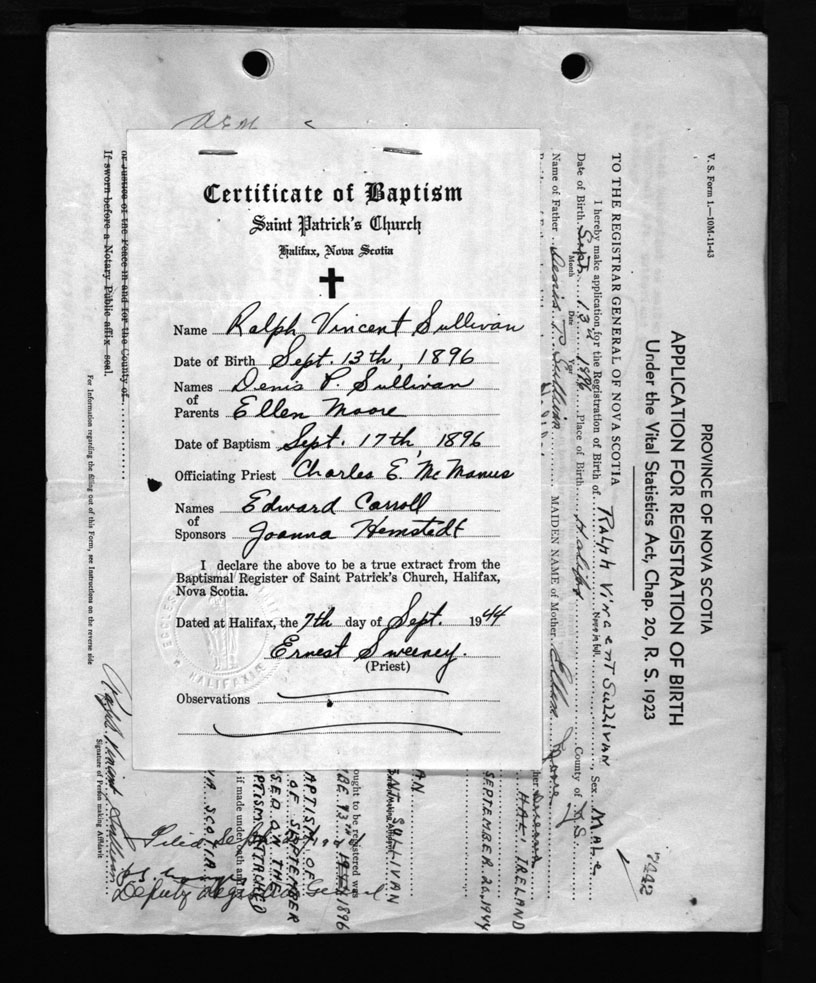 Certificate of Baptism
Saint Patrick's Church
Halifax, Nova Scotia
Name Ralph Vincent Sullivan
Date of Birth Sept. 13th, 1896
Names of Parents Denis P. Sullivan
Ellen Moore
Date of Baptism Sept. 17th, 1896
Officiating Priest Charles E. McManus
Names of Sponsors Edward Carroll
Joanna Hemstedt
I declare the above to be a true extract from the
Baptismal Register of Saint Patrick's Church, Halifax,
Nova Scotia.
Dated at Halifax, the 7th day of Sept. 1944
Ernest Sweeney.
(Priest)
Observations
HALIFAX
V. S. Form 1.—10M-11-43
PROVINCE OF NOVA SCOTIA
7442
APPLICATION FOR REGISTRATION OF BIRTH
Under the Vital Statistics Act, Chap. 20, R. S. 1923
TO THE REGISTRAR GENERAL OF NOVA SCOTIA
I hereby make application for the Registration of Birth of Ralph Vincent Sullivan Sex Male
Name in full
Date of Birth Sept. 13th 1896 Place of Birth Halifax County of N.S.
Month Date Year
Name of Father Denis P. Sullivan MAIDEN NAME of Mother Ellen
IRELAND
SEPTEMBER 20, 1944
SULLIVAN
ought to be registered was
1896
BAPTISM OF
OF SEPTEMBER
SED ON THE
PTISM ATTACHED
if made under oath and
VA SCOTIA
Filed
Deputy Registrar General
or Justice of the Peace in and for the County of
If sworn before a Notary Public affix seal.
For Information regarding the filling out of this Form, see Instructions on the reverse side
Ralph Vincent Sullivan
Signature of Person making Affidavit